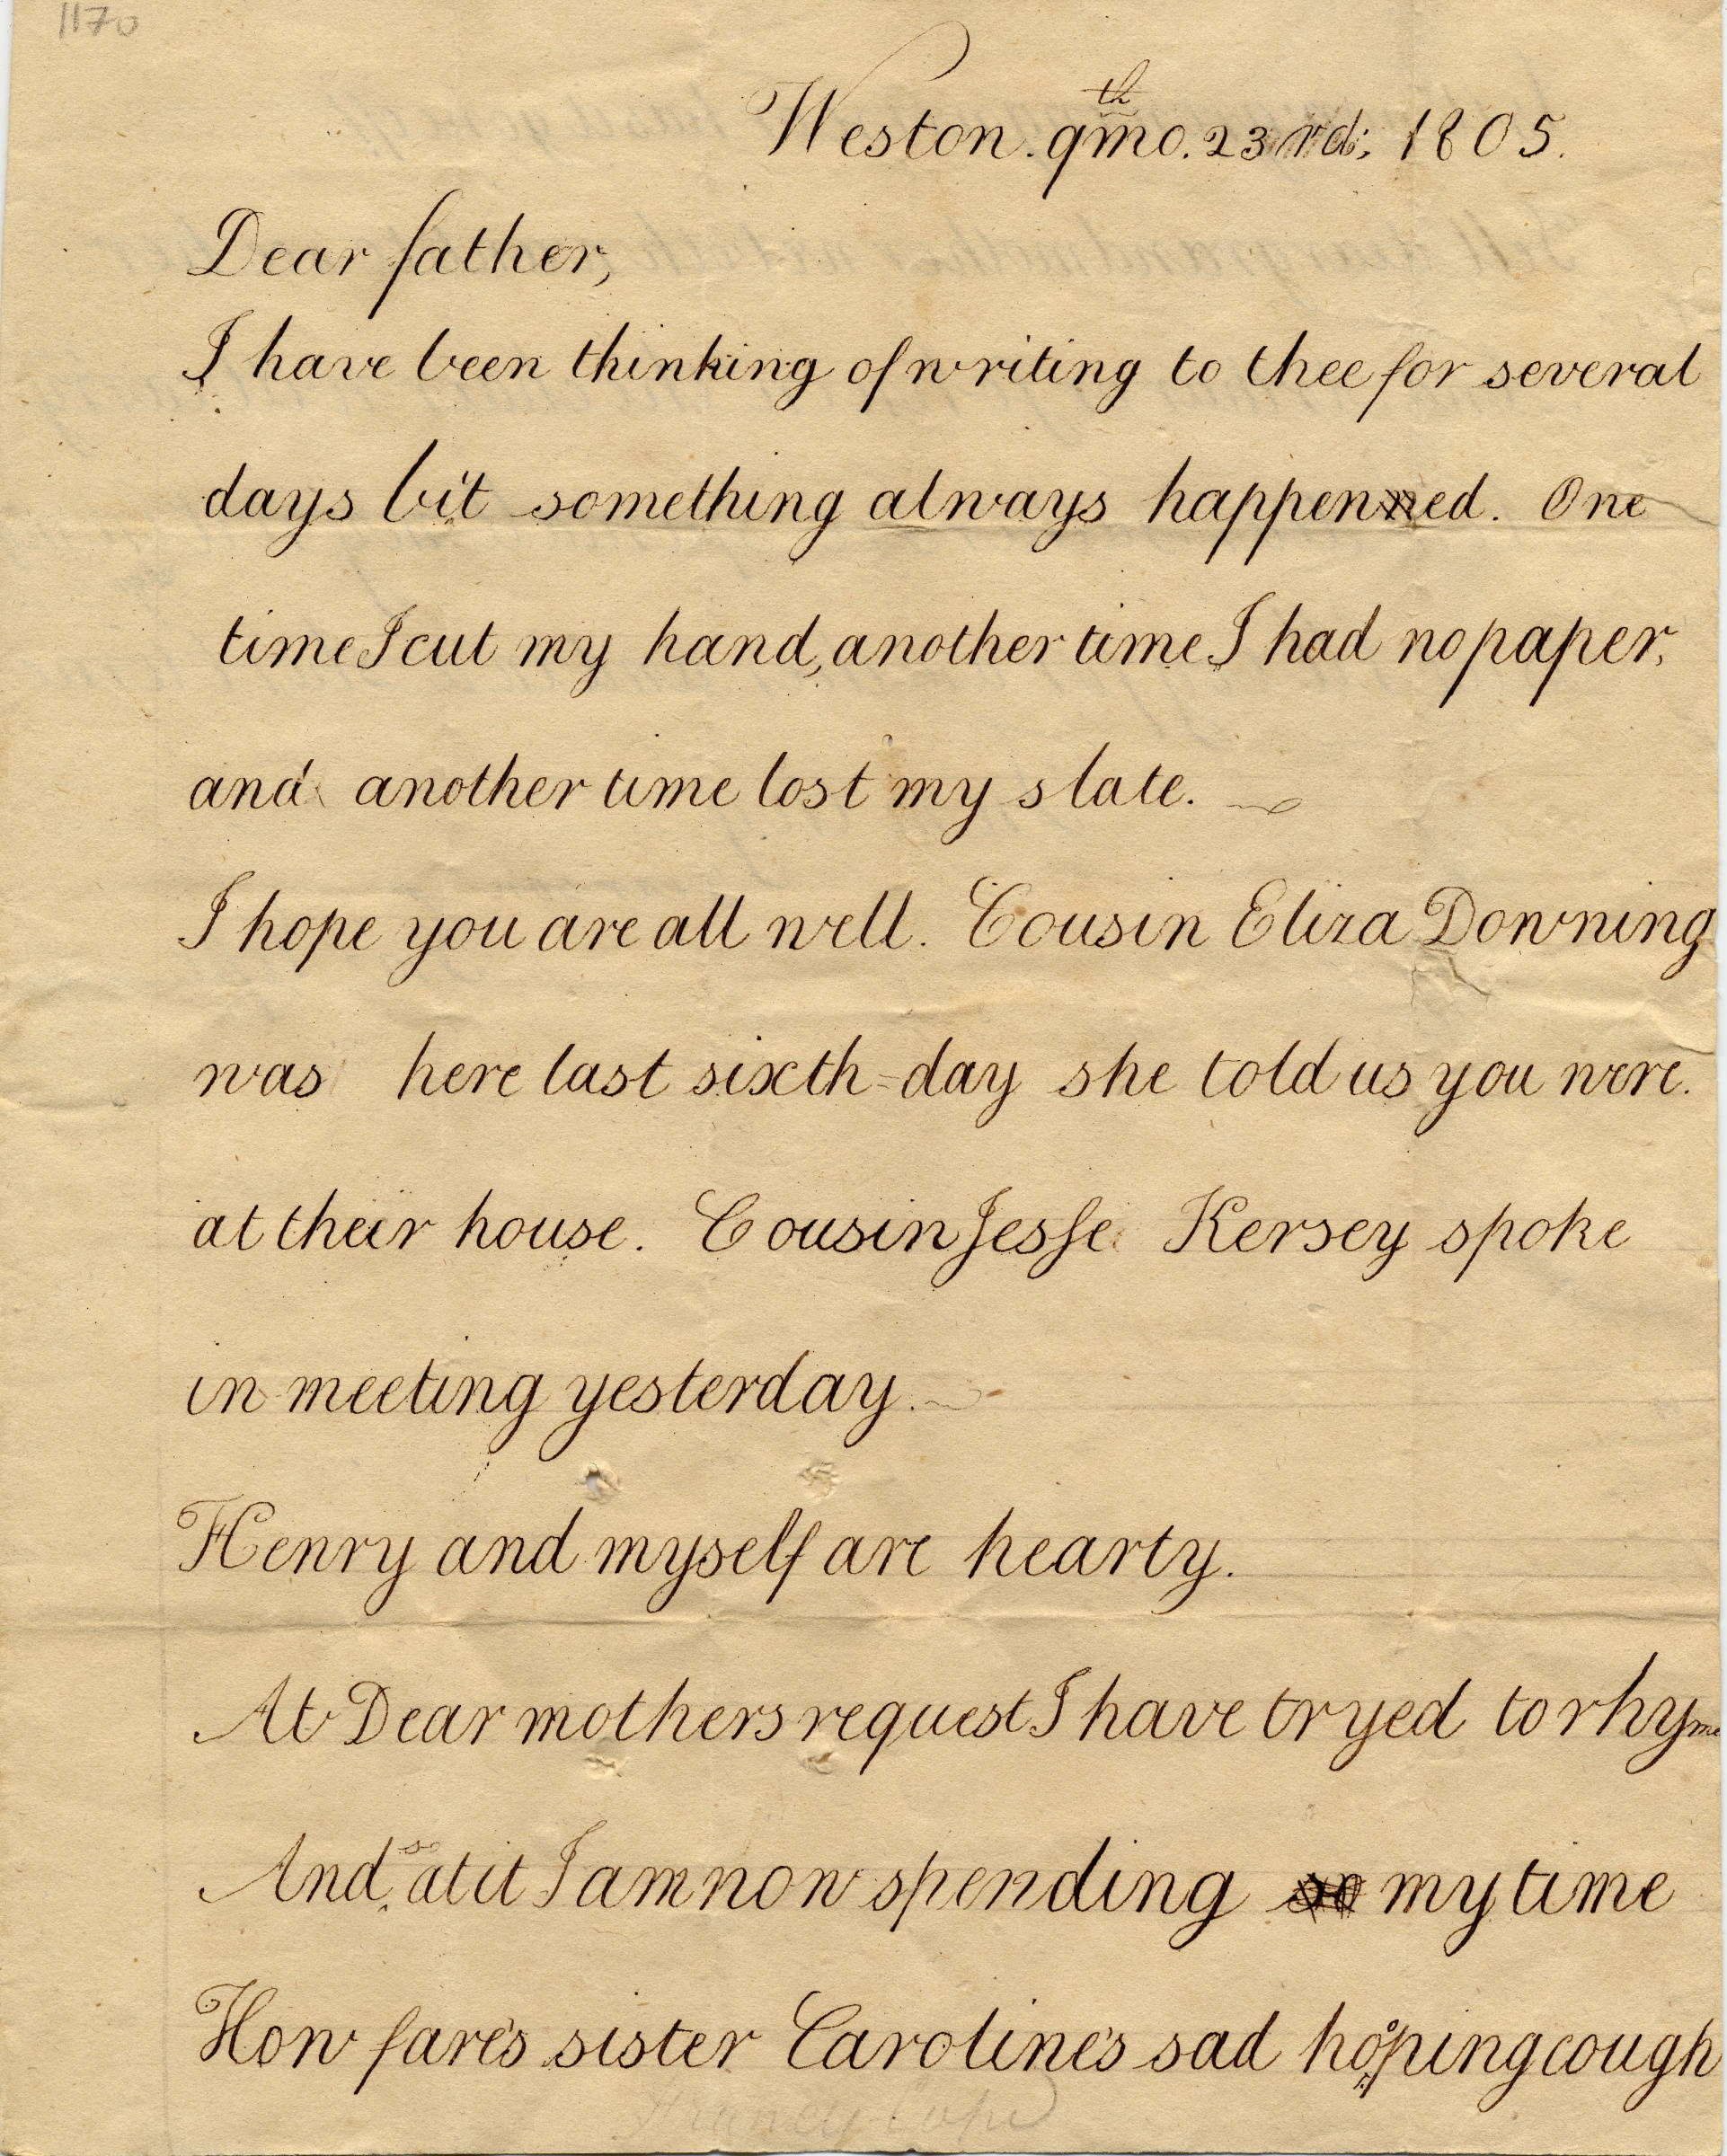 1170
Weston. 9th mo. 23rd; 1805.
Dear father,
I have been thinking of writing to thee for several
days bit something always happened. One
time I cut my hand, another time I had no paper,
and another time lost my slate.
I hope you are all well. Cousin Eliza Downing
was here last sixth-day she told us you were.
at their house. Cousin Jesse Kersey spoke
in meeting yesterday.
Henry and myself are hearty.
At Dear mothers request I have tryed to rhyme
And so at it I am now spending so my time
How fares sister Caroline's sad hoping cough
Cope